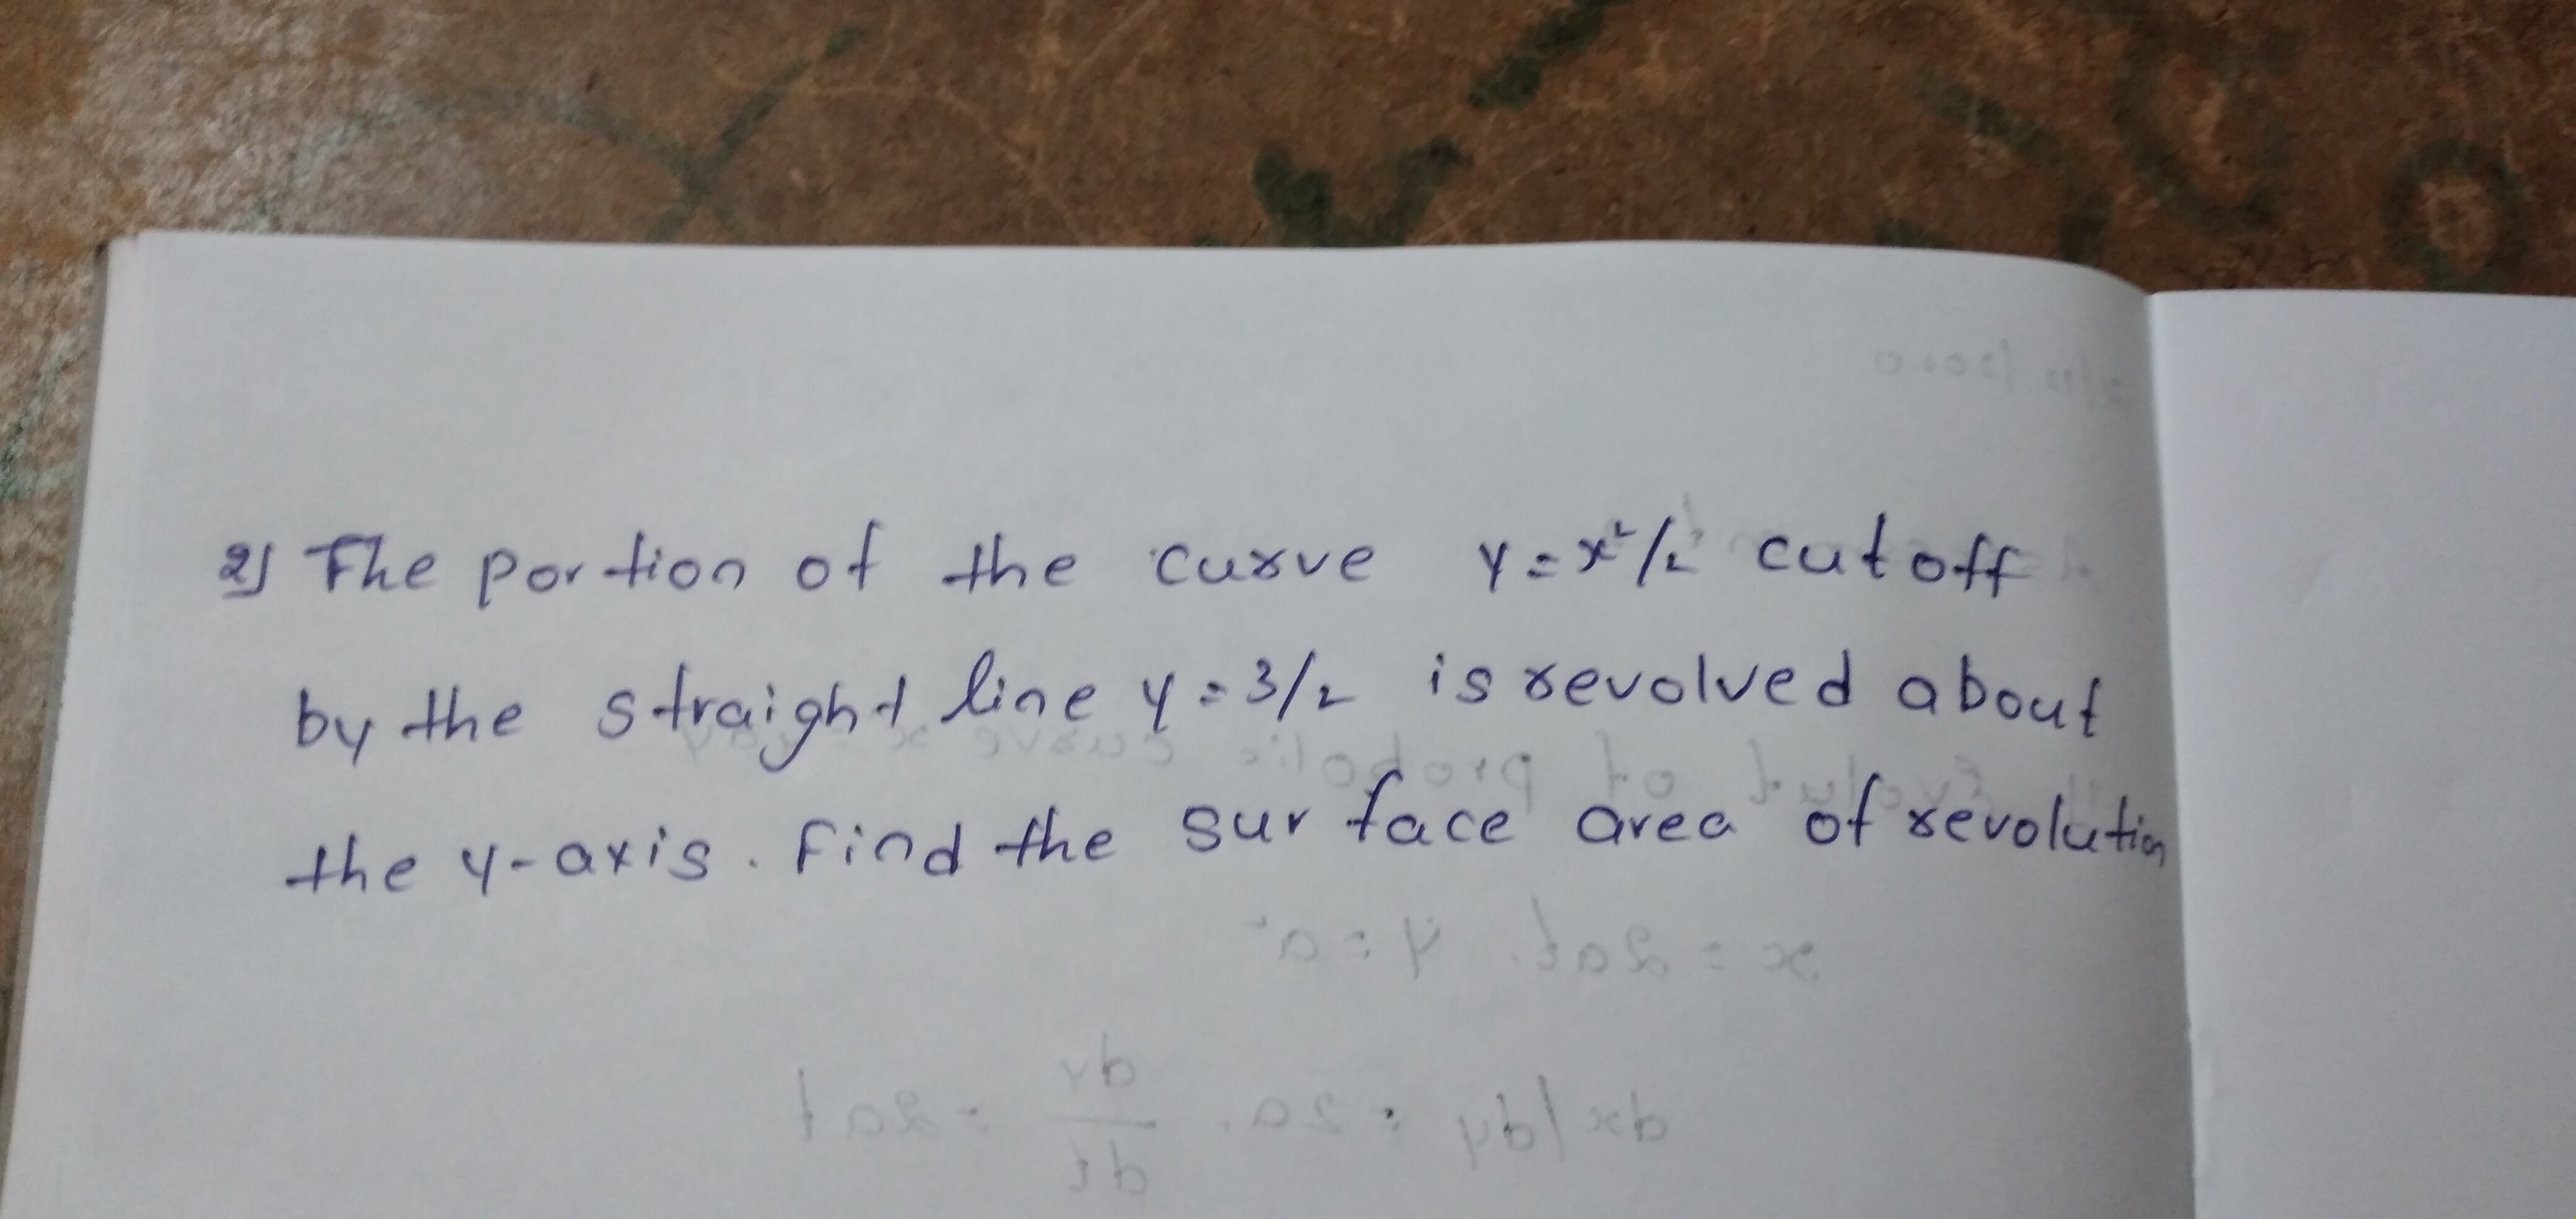 2) The portion of the curve y = x²/2 cut off
by the straight line y = 3/2 is revolved about
the y-axis. Find the surface area of revolution